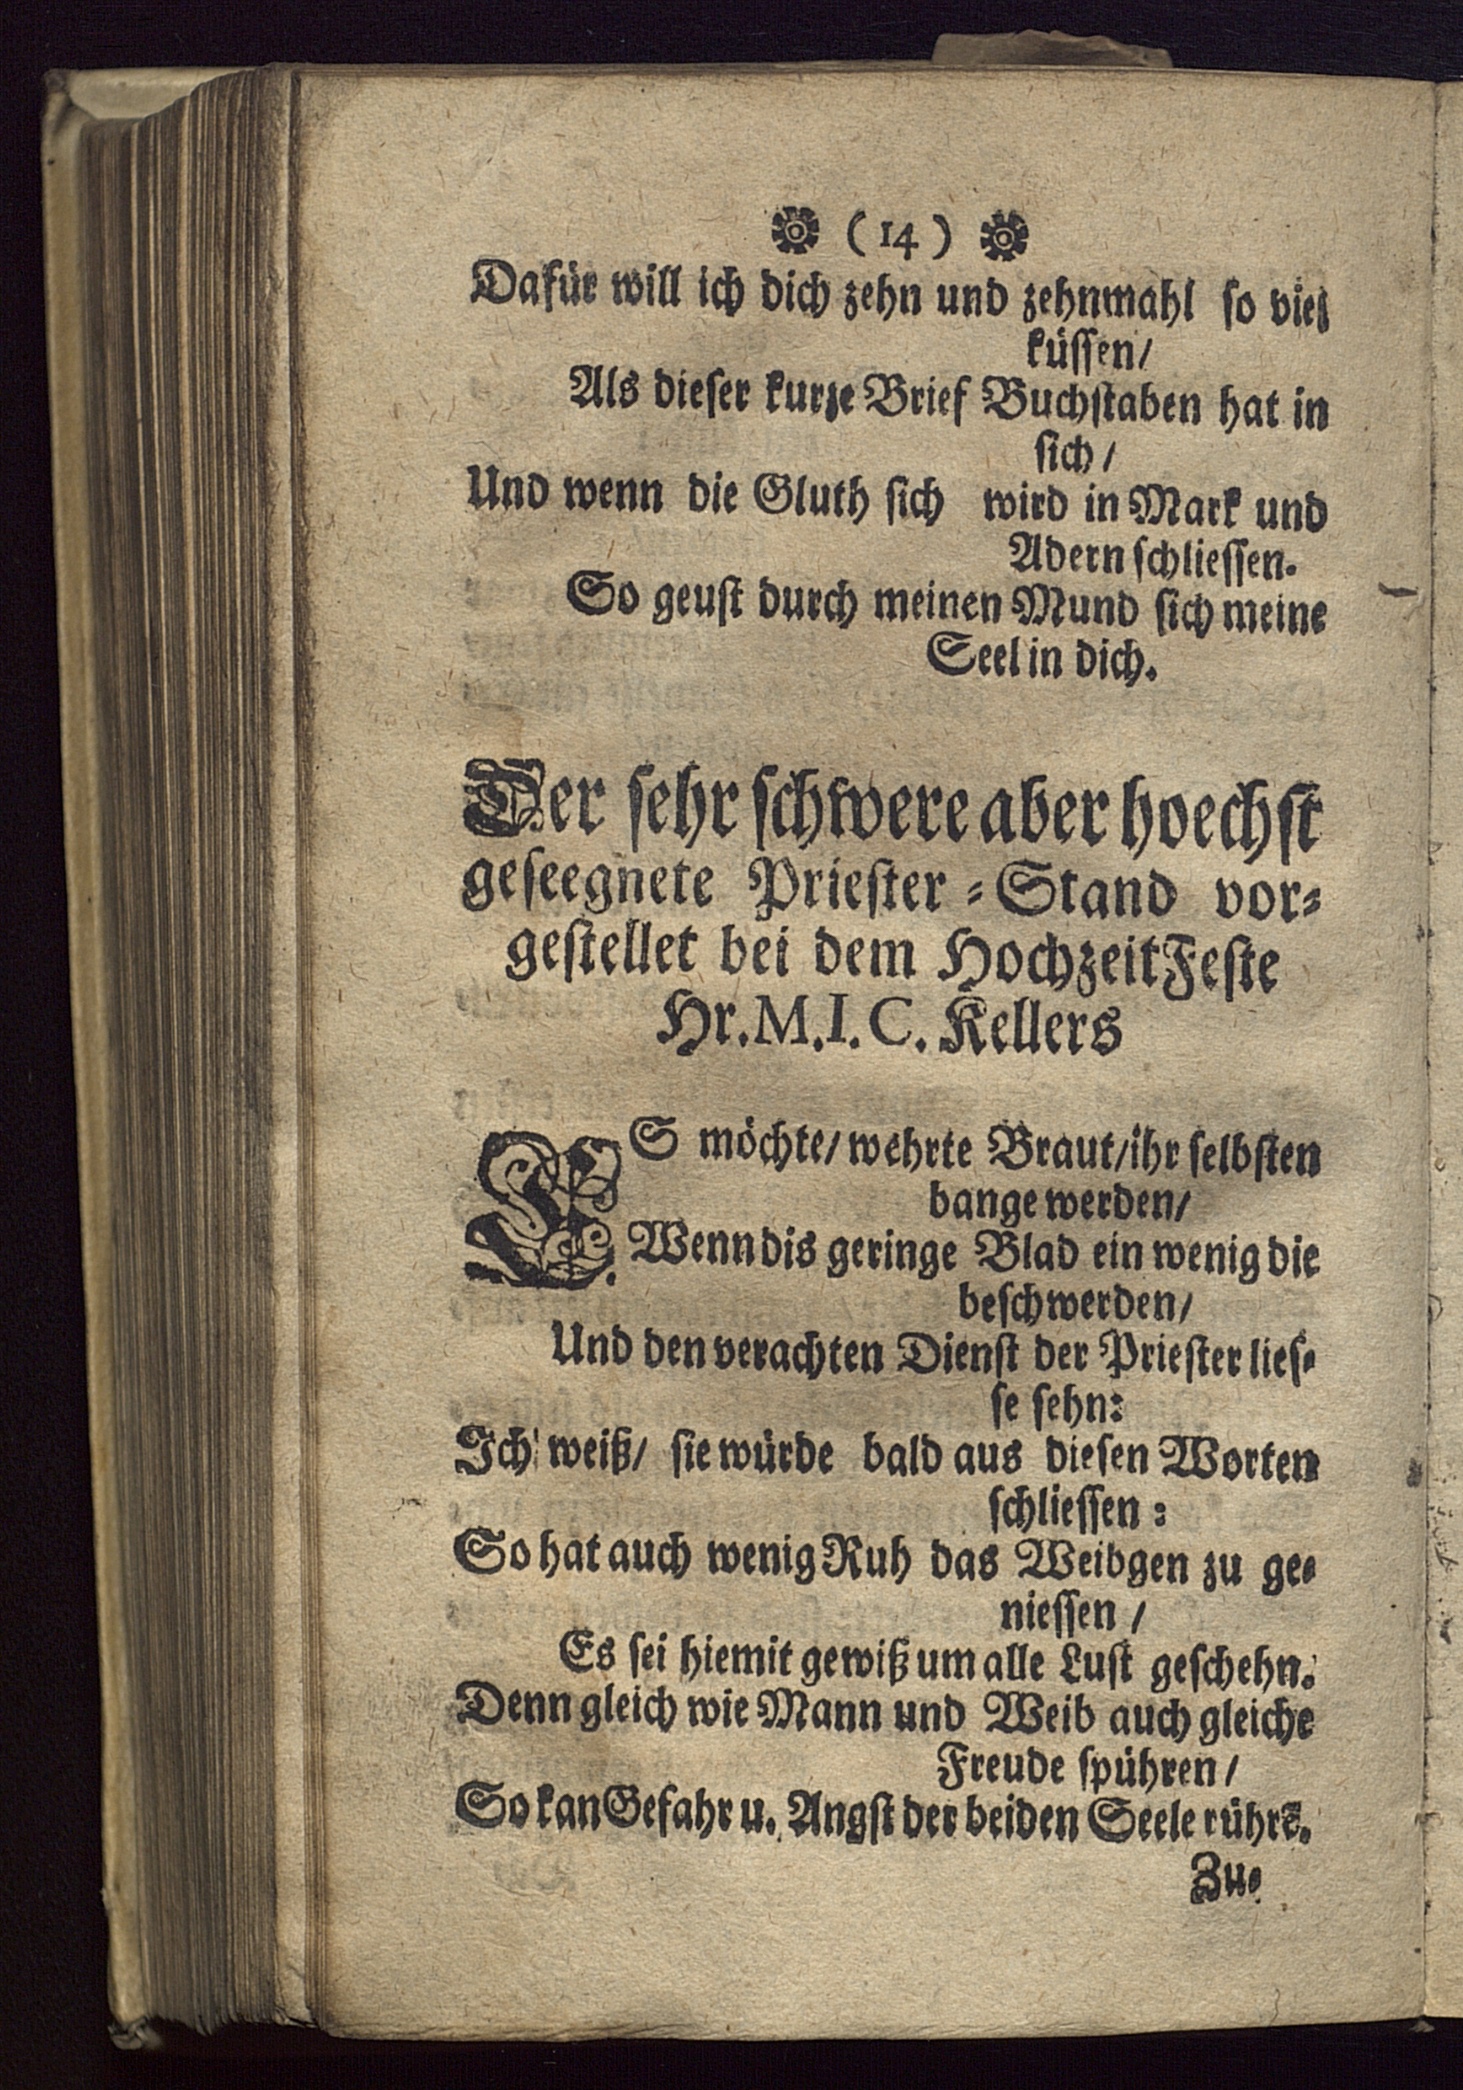 (14)
Dafür will ich dich zehn und zehnmahl so viel
küssen/
Als dieser kurze Brief Buchstaben hat in
sich/
Und wenn die Gluth sich wird in Mark und
Adern schliessen.
So geust durch meinen Mund sich meine
Seel in dich.
Der sehr schwere aber hoechst
geseegnete Priester-Stand vor-
gestellet bei dem HochzeitFeste
Hr. M. I. C. Kellers
ES möchte/ wehrte Braut/ ihr selbsten
bange werden/
Wenn dis geringe Blad ein wenig die
beschwerden/
Und den verachten Dienst der Priester lies-
se sehn:
Ich weiß/ sie würde bald aus diesen Worten
schliessen:
So hat auch wenig Ruh das Weibgen zu ge-
niessen/
Es sei hiemit gewiß um alle Lust geschehn.
Denn gleich wie Mann und Weib auch gleiche
Freude spühren/
So kan Gefahr u. Angst der beiden Seele rührē.
Zu-